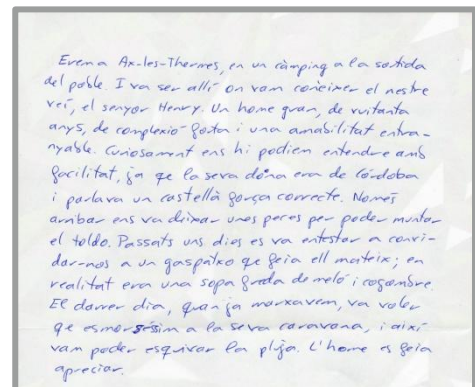 Erem a Ax-les-Thermes, en un càmping a la sortida
del poble. I va ser allí on vam conèixer el nostre
veí, el senyor Henry. Un home gran, de vuitanta
anys, de complexió forta i una amabilitat entra-
nyable. Curiosament ens hi podíem entendre amb
facilitat, ja qe la seva dona era de Córdoba
i parlava un castellà força correcte. Només
arribar ens va deixar unes peces per poder muntar
el toldo. Passats uns dies es va entestar a convi-
dar-nos a un gaspatxo qe feia ell mateix; en
realitat era una sopa freda de meló i cogombre.
El darrer dia, quan ja marxavem, va voler
qe esmorséssim a la seva caravana, i així
vam poder esquivar la pluja. L'home es feia
apreciar.